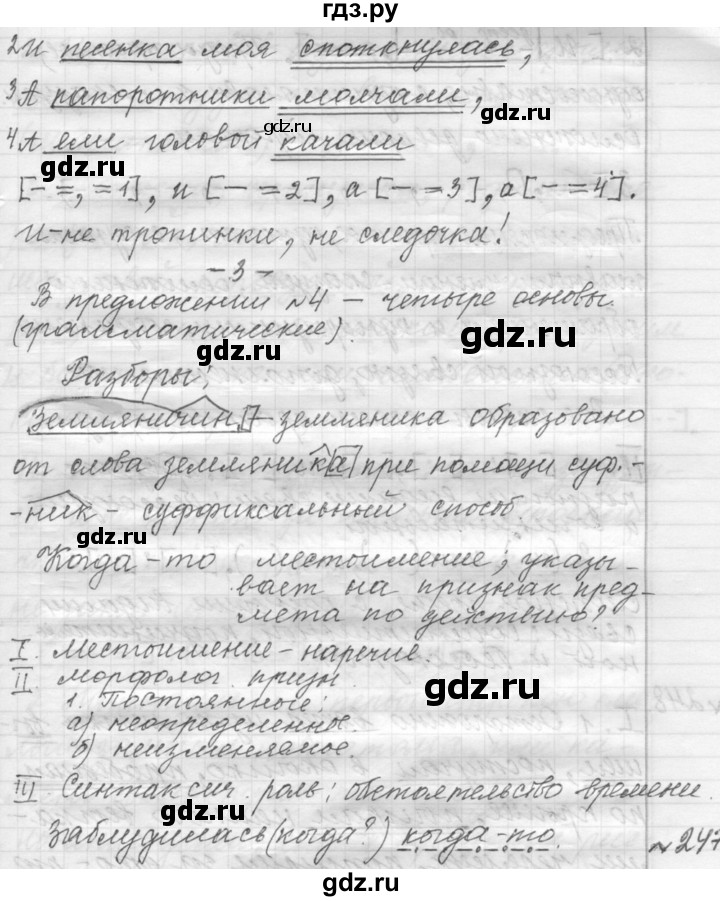 гдз.ру
2И песенка моя споткнулась,
3А папоротники молчали,
gdz.ru
4А ели головой качали
gdz.ru gdz.ru
[— =, = 1], и [— = 2], а [— = 3], а [— = 4].
И - не тропинки, не следочка!
- 3 -
В предложении №4 — четыре основы
(грамматические).
gdz.ru gdz.ru
Разборы:
Земляничин - земляника образовано
от слова земляника при помощи суф. -
- ник - суффиксальный способ.
gdz.ru
Когда-то (местоимение; указы-
вает на признак пред-
мета по действию?
I. Местоимение - наречие.
II морфолог. призн.
gdz.ru
1. Постоянные:
а) неопределенное.
б) неизменяемое.
III Синтаксич. роль: обстоятельство времени.
gdz.ru
Заблудилась (когда?) когда-то.
№247
gdz.ru